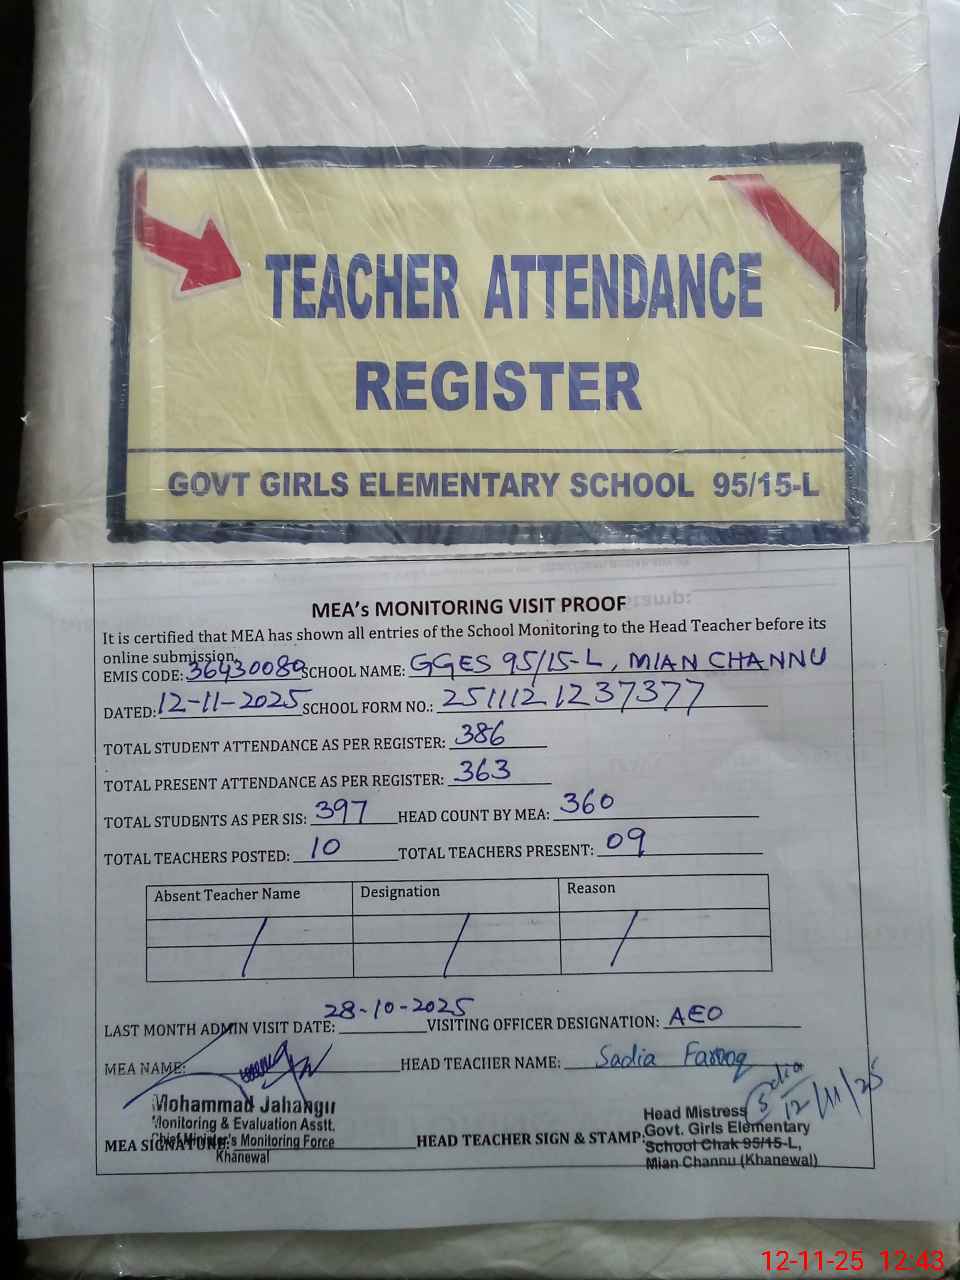 TEACHER ATTENDANCE
REGISTER
GOVT GIRLS ELEMENTARY SCHOOL 95/15-L
MEA's MONITORING VISIT PROOF
It is certified that MEA has shown all entries of the School Monitoring to the Head Teacher before its
online submission.
EMIS CODE: 36430080 SCHOOL NAME: GGES 95/15-L, MIAN CHANNU
DATED: 12-11-2025 SCHOOL FORM NO.: 2511121237377
TOTAL STUDENT ATTENDANCE AS PER REGISTER: 386
TOTAL PRESENT ATTENDANCE AS PER REGISTER: 363
TOTAL STUDENTS AS PER SIS: 397 HEAD COUNT BY MEA: 360
TOTAL TEACHERS POSTED: 10 TOTAL TEACHERS PRESENT: 09
Absent Teacher Name Designation Reason
LAST MONTH ADMIN VISIT DATE: 28-10-2025 VISITING OFFICER DESIGNATION: AEO
MEA NAME: HEAD TEACHER NAME: Sadia Farooq
Sadia
12/11/25
Mohammad Jahangir
Monitoring & Evaluation Asstt.
Chief Minister's Monitoring Force
Khanewal
MEA SIGNATURE: HEAD TEACHER SIGN & STAMP:
Head Mistress
Govt. Girls Elementary
School Chak 95/15-L,
Mian Channu (Khanewal)
12-11-25 12:43